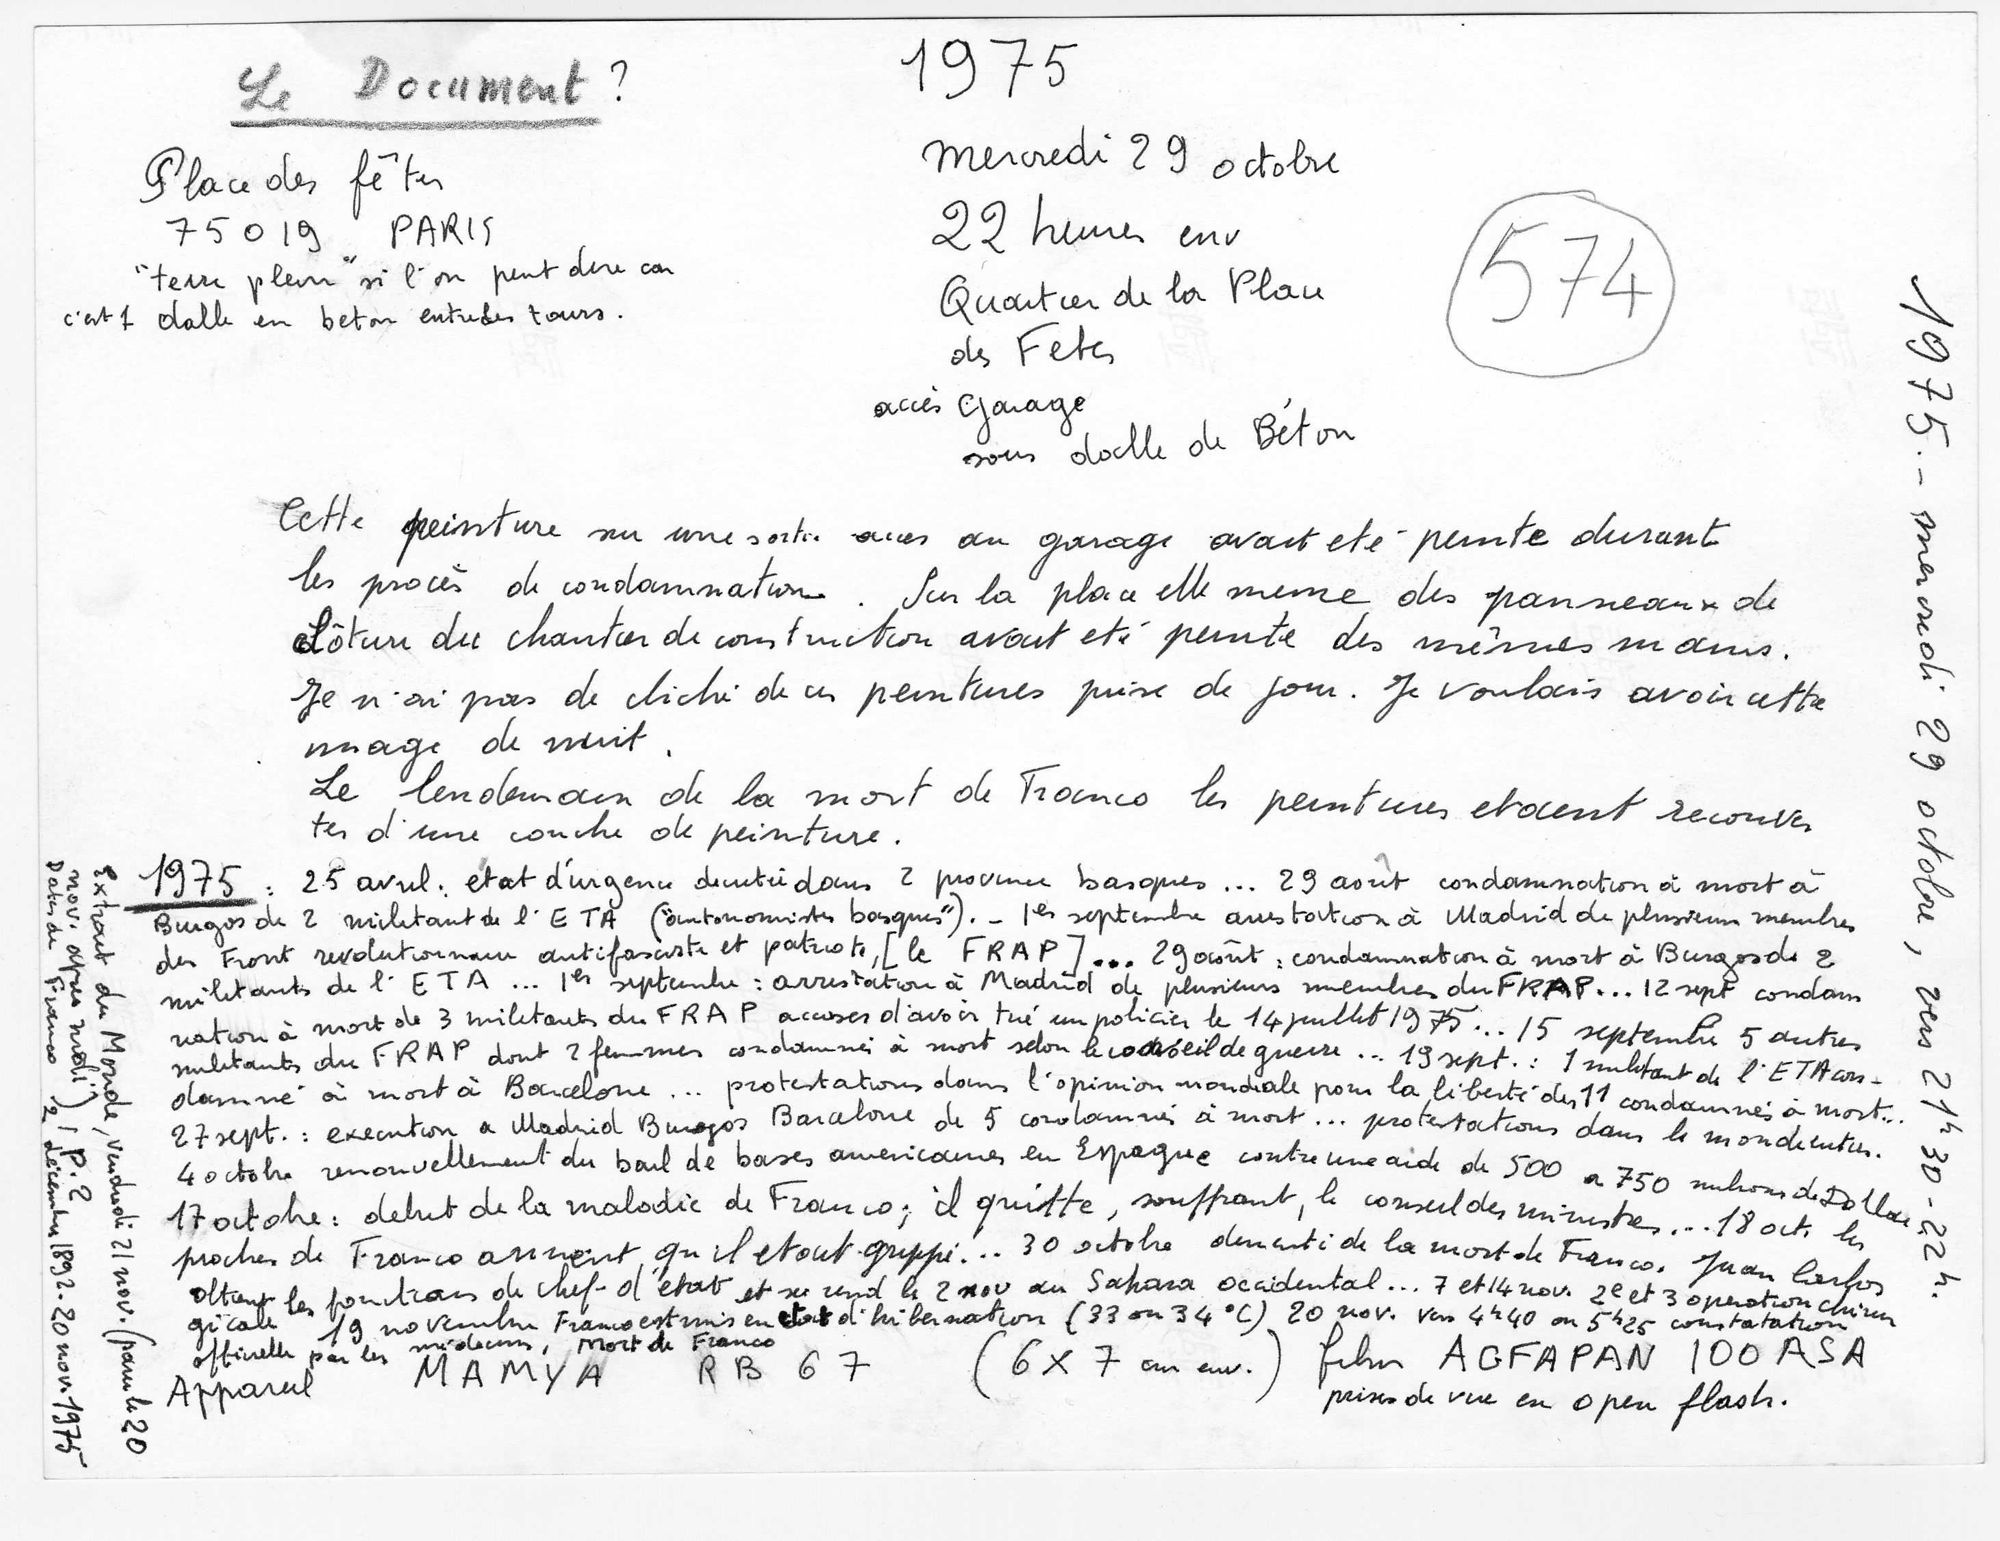 Le Document ?
Place des fêtes
75019 PARIS
"terre plein" si l'on peut dire car
c'est 1 dalle en beton entre les tours.
1975
Mercredi 29 octobre
22 heures env
Quartier de la Place
des Fetes
accès Garage
sous dalle de Béton
574
1975.- mercredi 29 octobre, vers 21h30-22h.
Cette peinture su une sortie acces au garage avait eté peinte durant
les procès de condamnation. Sur la place elle meme des panneaux de
clôture du chantier de construction avait eté peinte des mêmes mains.
Je n'ai pas de cliché de ces peintures prise de jour. Je voulais avoir cette
image de nuit.
Le lendemain de la mort de Franco les peintures etaient recouver
tes d'une couche de peinture.
1975 : 25 avril : etat d'urgence decrété dans 2 province basques... 29 août condamnation à mort à
Burgos de 2 militant de l'ETA ("autonomistes basques"). - 1er septembre arrestation à Madrid de plusieurs membres
des Front revolutionnaire antifasciste et patriote, [le FRAP]... 29 août : condamnation à mort à Burgos de 2
militants de l'ETA... 1er septembre : arrestation à Madrid de plusieurs membres du FRAP... 12 sept condam
nation à mort de 3 militants du FRAP accuses d'avoir tué un policier le 14 juillet 1975... 15 septembre 5 autres
militants du FRAP dont 2 femmes condamnés à mort selon le conseil de guerre... 19 sept. : 1 militant de l'ETA con-
damné à mort à Barcelone... protestations dans l'opinion mondiale pour la liberté des 11 condamnés à mort...
27 sept. : execution a Madrid Burgos Barcelone de 5 condamnés à mort... protestations dans le monde entier.
4 octobre renouvellement du bail de bases americaines en Espagne contre une aide de 500 a 750 millions de Dollar
17 octobre : debut de la maladie de Franco ; il quitte, souffrant, le conseil des ministres... 18 oct. les
proches de Franco annoncent qu'il etait grippé... 30 octobre dementi de la mort de Franco. Juan Carlos
obtient les fonctions de chef d'état et se rend le 2 nov au Sahara occidental... 7 et 14 nov. 2e et 3 operation chirur
gicale 19 novembre Franco est mis en etat d'hibernation (33 ou 34°C) 20 nov. vers 4h40 ou 5h25 constatation
officielle par les médecins, Mort de Franco
Appareil MAMYA RB 67 (6 X 7 cm env.) film AGFAPAN 100 ASA
prises de vue en open flash.
Extrait du Monde, vendredi 21 nov. (paru le 20
nov. apres midi) / P. 2
Dates de Franco : 2 décembre 1892. 20 nov. 1975